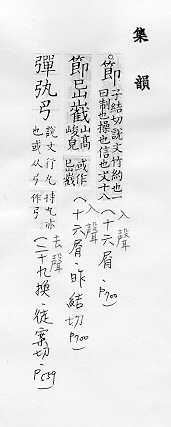 集韻
節 子結切說文竹約也一曰制也操也信也文十八 入聲(十六屑.P700)
節㠱巀 山高峻皃或作㠱巀 入聲(十六屑.昨結切P700)
彈弞弓 說文行丸也或从弓持丸亦作弓 去聲(二十九換.徒案切.P559)